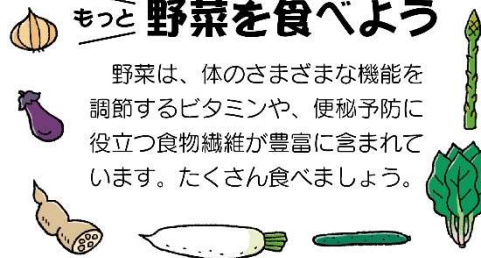 もっと野菜を食べよう
野菜は、体のさまざまな機能を
調節するビタミンや、便秘予防に
役立つ食物繊維が豊富に含まれて
います。たくさん食べましょう。